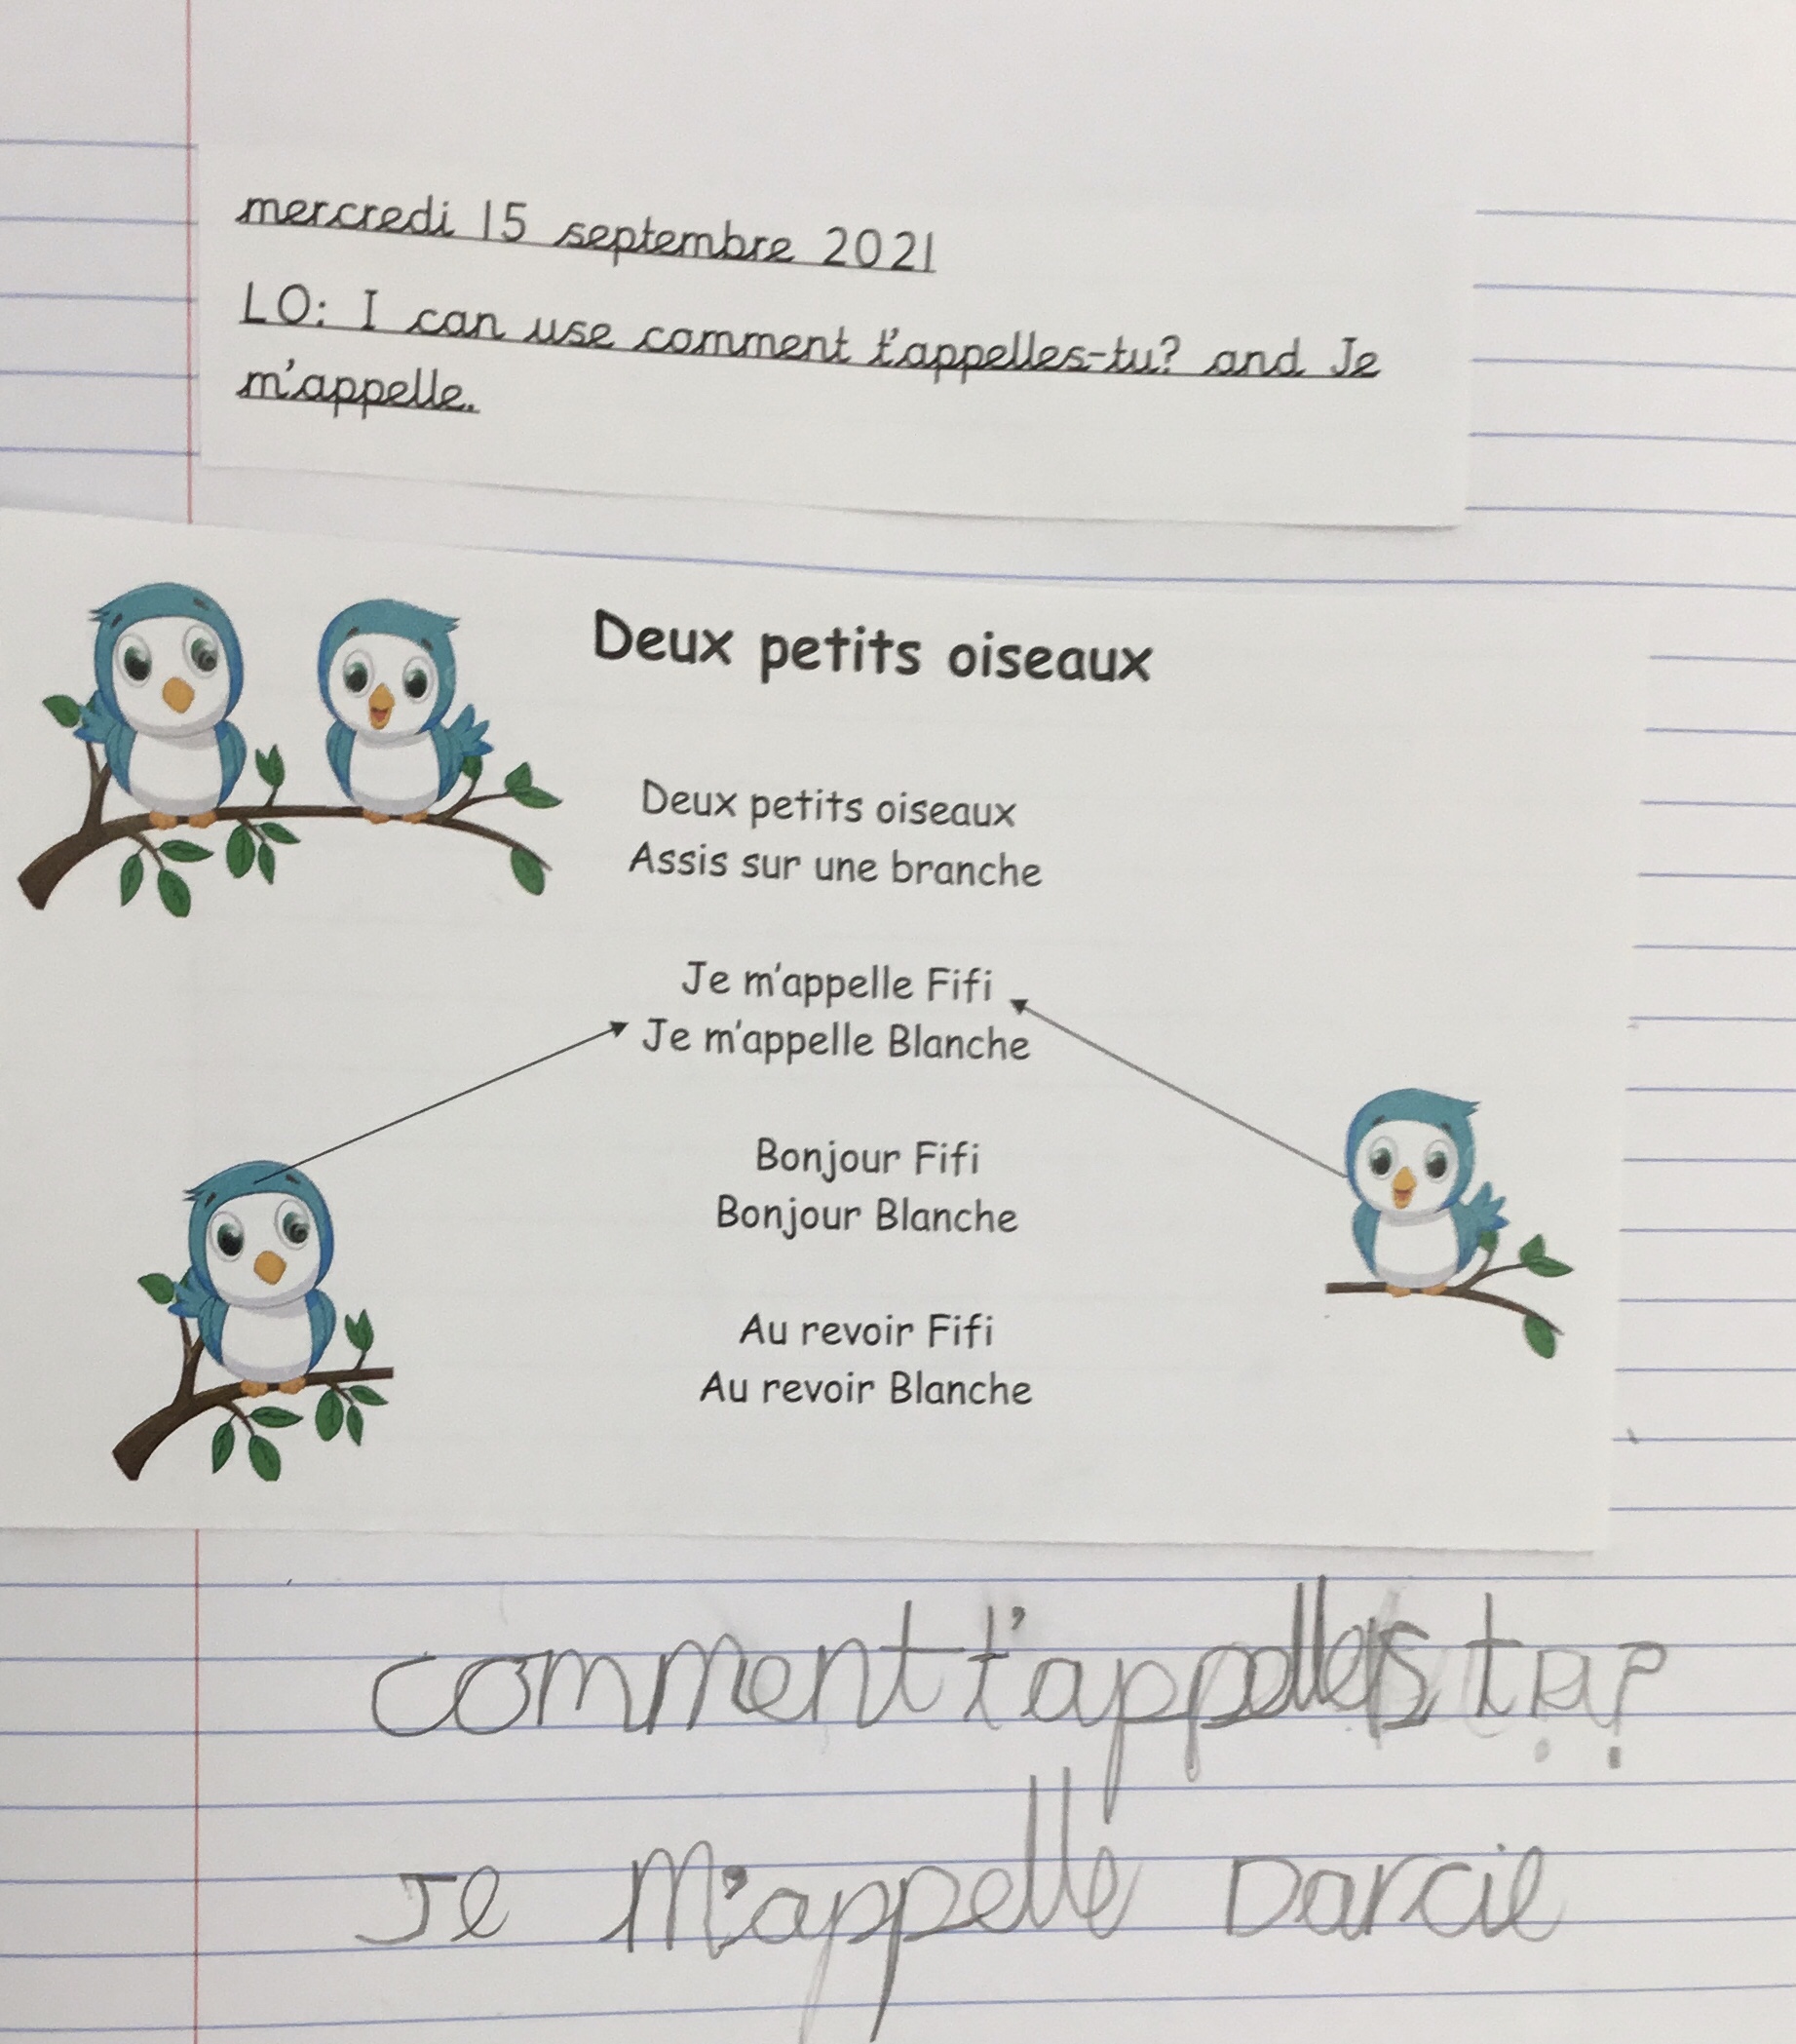 mercredi 15 septembre 2021
LO: I can use comment t'appelles-tu? and Je
m'appelle.
Deux petits oiseaux
Deux petits oiseaux
Assis sur une branche
Je m'appelle Fifi
Je m'appelle Blanche
Bonjour Fifi
Bonjour Blanche
Au revoir Fifi
Au revoir Blanche
comment t'appelles tu?
Je M'appelle Darcie